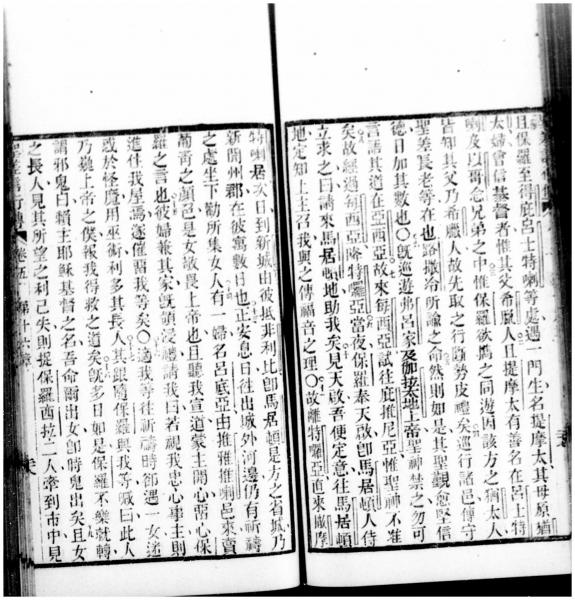 且保羅至得庇呂士特喇等處遇一門生名提摩太其母原猶
太婦會信基督者惟其父希臘人且提摩太有善名在呂士特
喇及以哥念兄弟之中惟保羅欲膺之同遊因該方之猶太人
皆知其父乃希臘人故先取之行斷勢皮禮矣巡行諸邑傳守
聖差長老等在也路撒冷所諭之命然則如是其聖觀愈堅信
德日加其數也〇既巡遊弗呂家及伽拉提亞聖神禁之勿可
言語其道在亞西亞故來每西亞試往庇推尼亞惟聖神不准
矣故經過每西亞降特囉亞當夜保羅奉天啟卽馬居頓人侍
立求之曰請來馬居頓地助我矣見天啟吾便定意往馬居頓
地定知上主召我與之傳福音之理〇故離特囉亞直來撒摩
特喇居次日到新城由彼抵非利比卽馬居頓是方之省城乃
新開州郡在彼寓數日也正安息日往出城外河邊仍有祈禱
之處坐下勸所集女人有一婦名呂底亞由推雅推喇邑來賣
葡靑之顏色是女敬畏上帝也且聽我宣道蒙主開心留心保
羅之言也彼婦兼其家既領浸禮請我曰若視我忠心事主則
進住我屋焉遂催畱我等矣〇適我等往祈禱時卻遇一女迷
或於怪魔用巫術利多其長人其跟隨保羅與我等喊曰此人
乃至上帝之僕報我得救之道矣既多日如是保羅不樂就轉
謂邪鬼曰賴主耶穌基督之名吾命爾出女卽時鬼出矣且女
之長人見其所望之利已失則捉保羅西拉二人牽到市中見
聖差言行傳 卷五 第十六章